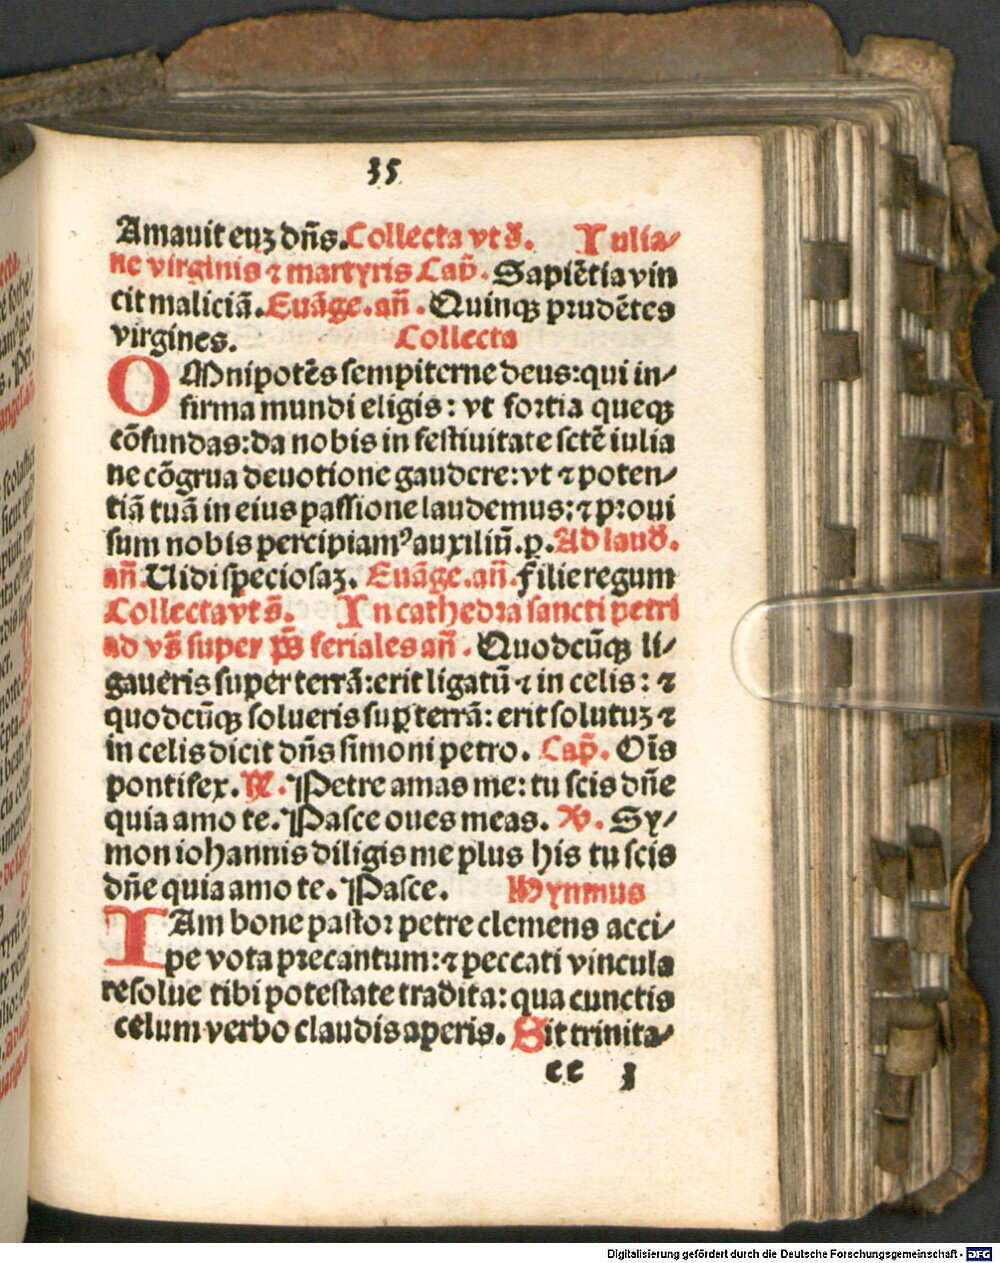 35
Amauit euꝫ dn̄s. Collecta vt s̄. Iulia⸗
ne virginis ⁊ martyris Cap̄. Sapiētia vin
cit maliciā. Euāge. an̄. Quinqꝫ prudētes
virgines. Collecta
OMnipotēs sempiterne deus: qui in⸗
firma mundi eligis: vt fortia queqꝫ
cōfundas: da nobis in festiuitate sctē iulia
ne cōgrua deuotione gaudere: vt ⁊ poten⸗
tiā tuā in eius passione laudemus: ⁊ proui
sum nobis percipiamꝰ auxiliū. p. Ad laud̄.
an̄. Uidi speciosaꝫ. Euāge. an̄. filie regum
Collecta vt s̄. In cathedra sancti petri
ad vs̄ super ps̄ feriales an̄. Quodcūqꝫ li⸗
gaueris super terrā: erit ligatū ⁊ in celis: ⁊
quodcūqꝫ solueris suꝑ terrā: erit solutuꝫ ⁊
in celis dicit dn̄s simoni petro. Cap̄. Oīs
pontifex. ℟. Petre amas me: tu scis dn̄e
quia amo te. Pasce oues meas. ℣. Sy⸗
mon iohannis diligis me plus his tu scis
dn̄e quia amo te. Pasce. Hymnus
IAm bone pastor petre clemens acci⸗
pe vota precantum: ⁊ peccati vincula
resolue tibi potestate tradita: qua cunctis
celum verbo claudis aperis. Sit trinita⸗
cc 3
Digitalisierung gefördert durch die Deutsche Forschungsgemeinschaft - DFG